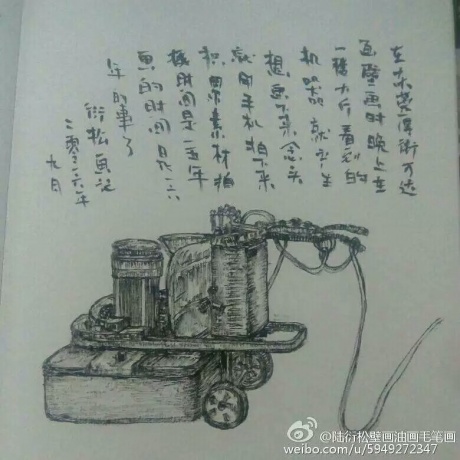 在东
万达
画壁画时晚上在
一楼大厅看到的
机器就产生
想画下来念头
就用手机拍下来
积累素材拍
摄时间是一五年
画的时间是一六
年的事了
衍松画记
二零一六年
九月
@陆衍松壁画油画毛笔画
weibo.com/u/5949272347